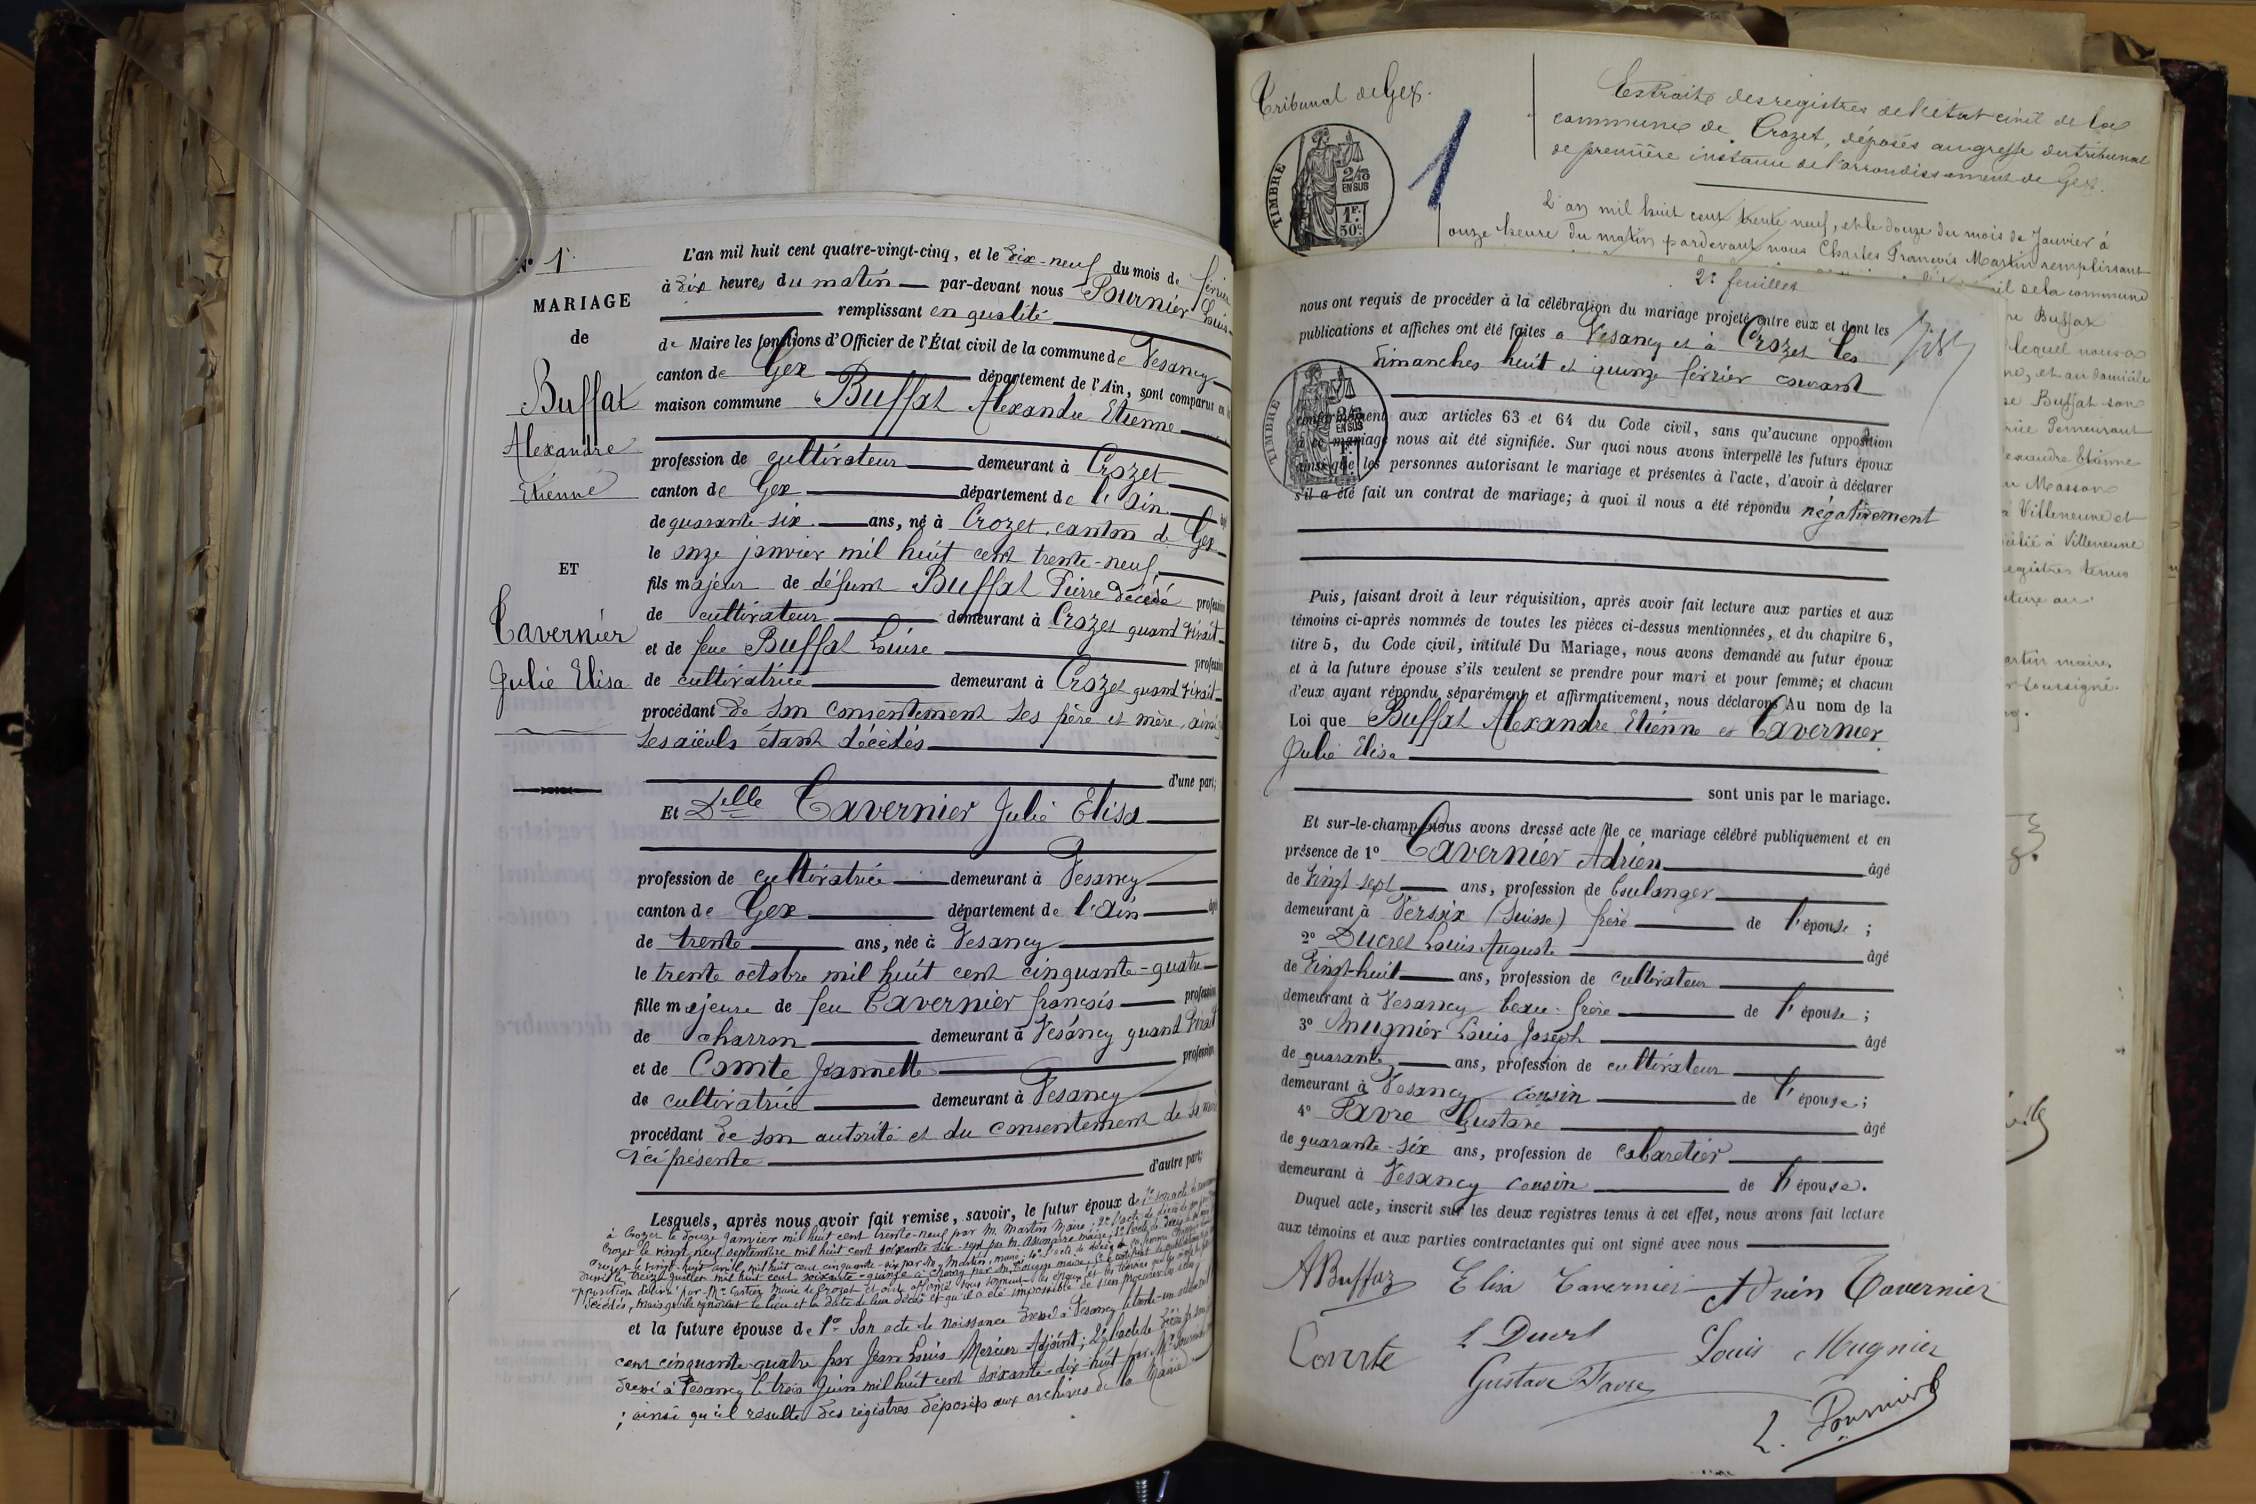 N° 1.
MARIAGE
de
Buffat
Alexandre
Etienne
ET
Tavernier
Julie Elisa
L'an mil huit cent quatre-vingt-cinq, et le dix-neuf du mois de février
à dix heures du matin par-devant nous Fournier Louis
remplissant en qualité
de Maire les fonctions d'Officier de l'État civil de la commune de Vesancy
canton de Gex département de l'Ain, sont comparus en la
maison commune Buffat Alexandre Etienne
profession de cultivateur demeurant à Crozet
canton de Gex département de l'Ain âgé
de quarante-six ans, né à Crozet, canton de Gex
le onze janvier mil huit cent trente-neuf,
fils majeur de défunt Buffat Pierre décédé profession
de cultivateur demeurant à Crozet quand vivait
et de feue Buffat Louise profession
de cultivatrice demeurant à Crozet quand vivait
procédant de son consentement ses père et mère, ainsi
ses aïeuls étant décédés
d'une part;
Et Delle Tavernier Julie Elisa
profession de cultivatrice demeurant à Vesancy
canton de Gex département de l'Ain âgé
de trente ans, née à Vesancy
le trente octobre mil huit cent cinquante-quatre
fille majeure de feu Tavernier françois profession
de charron demeurant à Vesancy quand vivait
et de Comte Jeannette profession
de cultivatrice demeurant à Vesancy
procédant de son autorité et du consentement de sa mère
ici présente
d'autre part;
Lesquels, après nous avoir fait remise, savoir, le futur époux de 1° son acte de
à Crozet le douze Janvier mil huit cent trente-neuf par M. Martin Maire; 2° l'acte de décès de
Crozet le vingt neuf septembre mil huit cent soixante dix-sept par M. maire; 3° l'acte de décès de
le vingt-huit avril mil huit cent cinquante-six par M. Martin, maire; 4° l'acte de décès de
le treize juillet mil huit cent soixante-quinze à par M. maire; 5° certificat de publication et
opposition délivré par M. maire de Crozet Et ont affirmé sous serment les époux et les témoins que les
décédés, mais qu'ils ignorent le lieu et la date de leur décès et qu'il a été impossible de s'en procurer
et la future épouse de 1° Son acte de naissance dressé à Vesancy le trente-un octobre mil
cent cinquante-quatre par Jean Louis Mercier Adjoint; 2° l'acte de décès de son
dressé à Vesancy le trois Juin mil huit cent soixante-dix-huit par M.
; ainsi qu'il résulte des registres déposés aux archives de la Mairie
Tribunal de Gex.
1
TIMBRE
2/10
EN SUS
1F.
50c.
Extraits des registres de l'état civil de la
commune de Crozet, déposés au greffe du tribunal
de première instance de l'arrondissement de Gex.
L'an mil huit cent trente neuf, et le douze du mois de Janvier à
onze heure du matin pardevant nous Charles François Martin remplissant
de la commune
Buffat
lequel nous a
et au domicile
Buffat son
demeurant
Alexandre Etienne
Masson
à Villeneuve et
à Villeneuve
registres tenus
Martin maire,
soussigné.
2e feuillet
nous ont requis de procéder à la célébration du mariage projeté entre eux et dont les
publications et affiches ont été faites à Vesancy et à Crozet les
dimanches huit et quinze février courant
TIMBRE
2/10
EN SUS
conformément aux articles 63 et 64 du Code civil, sans qu'aucune opposition
à ce mariage nous ait été signifiée. Sur quoi nous avons interpellé les futurs époux
ainsi que les personnes autorisant le mariage et présentes à l'acte, d'avoir à déclarer
s'il a été fait un contrat de mariage; à quoi il nous a été répondu négativement
Puis, faisant droit à leur réquisition, après avoir fait lecture aux parties et aux
témoins ci-après nommés de toutes les pièces ci-dessus mentionnées, et du chapitre 6,
titre 5, du Code civil, intitulé Du Mariage, nous avons demandé au futur époux
et à la future épouse s'ils veulent se prendre pour mari et pour femme; et chacun
d'eux ayant répondu séparément et affirmativement, nous déclarons Au nom de la
Loi que Buffat Alexandre Etienne et Tavernier
Julie Elisa
sont unis par le mariage.
Et sur-le-champ nous avons dressé acte de ce mariage célébré publiquement et en
présence de 1° Tavernier Adrien âgé
de vingt-sept ans, profession de boulanger
demeurant à Versoix (Suisse) frère de l'épouse;
2° Ducret Louis Auguste âgé
de vingt-huit ans, profession de cultivateur
demeurant à Vesancy beau-frère de l'épouse;
3° Mugnier Louis Joseph âgé
de quarante ans, profession de cultivateur
demeurant à Vesancy cousin de l'épouse;
4° Favre Gustave âgé
de quarante-six ans, profession de cabaretier
demeurant à Vesancy cousin de l'épouse.
Duquel acte, inscrit sur les deux registres tenus à cet effet, nous avons fait lecture
aux témoins et aux parties contractantes qui ont signé avec nous
A Buffaz Elisa Tavernier Adrien Tavernier
Comte L Ducret Louis Mugnier
Gustave Favre
L. Fournier